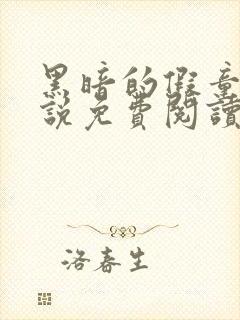 黑暗的假童
說免費閱讀
洛春生